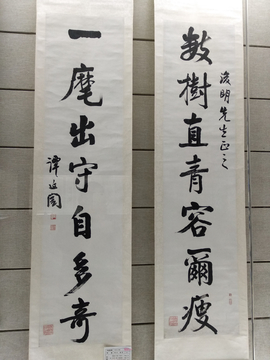 數樹直青容爾瘦
浚明先生正之
一麾出守自多奇
譚延闓